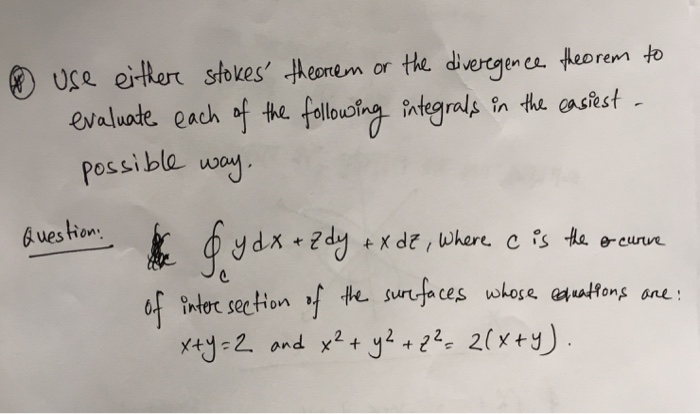 ⊛ Use either stokes' theorem or the divergence theorem to
evaluate each of the following integrals in the easiest -
possible way.
Question: ∮_C ydx + zdy + x dz, where c is the curve
of intersection of the surfaces whose equations are:
x+y=2 and x² + y² + z² = 2(x+y).